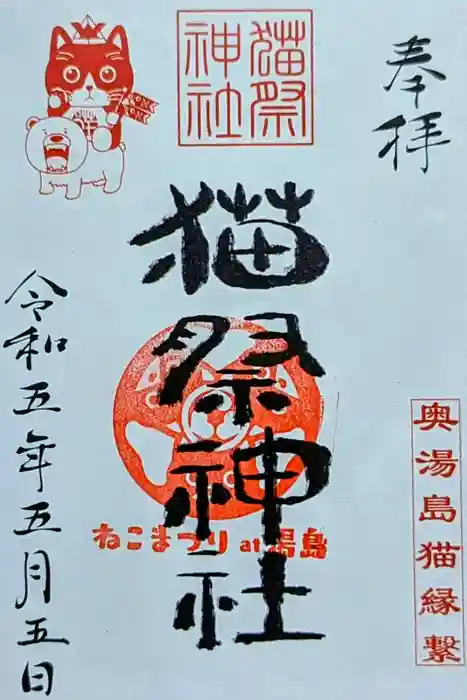 奉拝
猫祭神社
猫祭神社
ねこまつり at 湯島
奥湯島猫縁繋
令和五年五月五日